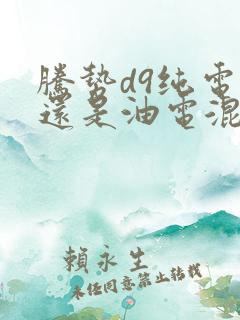 騰势d9纯電
還是油電混
賴永生
未经同意禁止转载